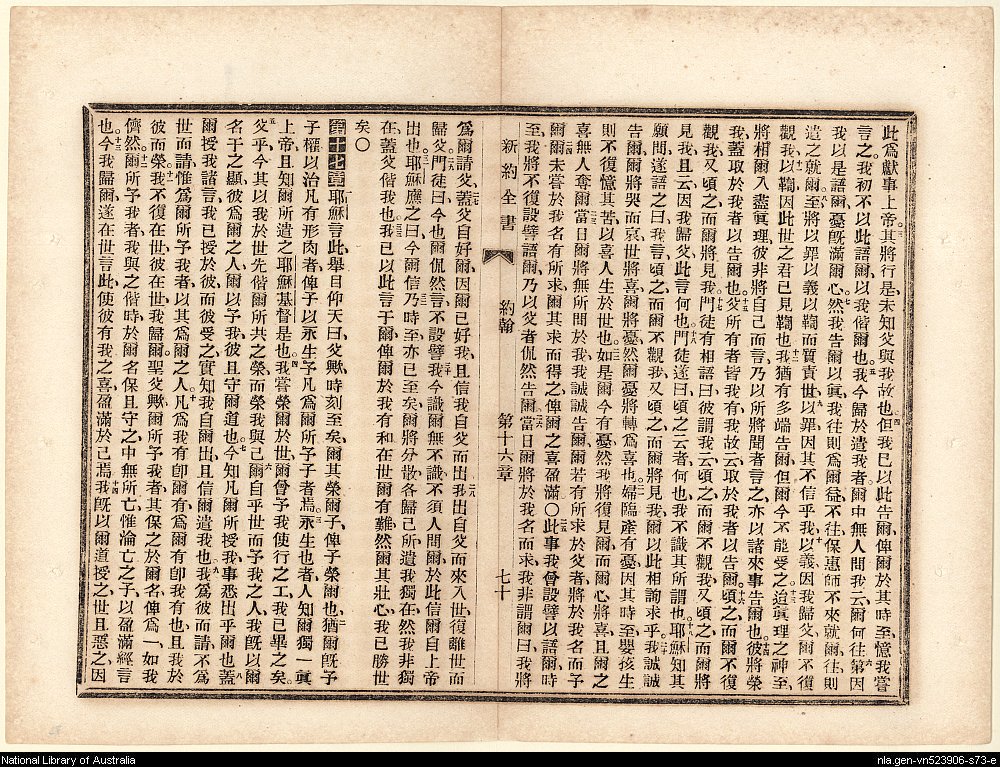 此爲獻事上帝其將行是未知父與我故也但我已以此告爾俾爾於其時至憶我嘗
言之我初不以此語爾以我偕爾也我今歸於遣我者爾中無人問我云爾何往第因
我以是語爾憂旣滿爾心然我告爾以眞我往則爲爾益不往保惠師不來就爾往則
遣之就爾至將以罪以義以鞫而質責世以罪因其不信乎我以義因我歸父爾不復
觀我以鞫因此世之君已見鞫也我猶有多端告爾但爾今不能受之迨眞理之神至
將相爾入盡眞理彼非將自己而言乃以所將聞者言之亦以諸來事告爾也彼將榮
我蓋取於我者以告爾也父所有者皆我有我故云取於我者以告爾頃之而爾不復
觀我又頃之而爾將見我門徒有相語曰彼謂我云頃之而爾不觀我又頃之而爾將
見我且云因我歸父此言何也門徒遂曰頃之云者何也我不識其所謂也耶穌知其
願問遂語之曰我言頃之而爾不觀我又頃之而爾將見我爾以此相詢求乎我誠誠
告爾爾將哭而哀世將喜爾將憂然爾憂將轉爲喜也婦臨產有憂因其時至嬰孩生
則不復憶其苦以喜人生於世也如是爾今有憂然我將復見爾而爾心將喜且爾之
喜無人奪爾當日爾將無所問於我我誠誠告爾爾若有所求於父者將於我名而予
爾爾未嘗於我名有所求爾其求而得之俾爾之喜盈滿〇此事我曾設譬以語爾時
至我將不復設譬語爾乃以父者侃然告爾當日爾將於我名而求我非謂爾曰我將
新約全書 約翰 第十六章 七十
爲爾請父蓋父自好爾因爾已好我且信我自父而出我出自父而來入世復離世而
歸父門徒曰今也爾侃然言不設譬我今識爾無不識不須人問爾於此信爾自上帝
出也耶穌應之曰今爾信乃時至亦已至矣爾將分散各歸己所遺我獨在然我非獨
在蓋父偕我也我已以此言于爾俾爾於我有和在世爾有難然爾其壯心我已勝世
矣〇
第十七章耶穌言此舉目仰天曰父歟時刻至矣爾其榮爾子俾子榮爾也猶爾旣予
子權以治凡有形肉者俾子以永生予凡爲爾所予子者焉永生也者人知爾獨一眞
上帝且知爾所遣之耶穌基督是也我嘗榮爾於世爾曾予我使行之工我已畢之矣
父乎今其以我於世先偕爾所共之榮而榮我與己爾自乎世而予我之人我旣以爾
名于之顯彼爲爾之人爾以予我彼且守爾道也今知凡爾所授我事悉出乎爾也蓋
爾授我諸言我已授於彼而彼受之實知我自爾出且信爾遣我也我爲彼而請不爲
世而請惟爲爾所予我者以其爲爾之人凡爲我有卽爾有爲爾有卽我有也且我於
彼而榮我不復在世彼在世我歸爾聖父歟爾所予我者其保之於爾名俾爲一如我
儕然爾所予我者我與之偕時於爾名保且守之中無所亡惟淪亡之子以盈滿經言
也今我歸爾遂在世言此使彼有我之喜盈滿於己焉我旣以爾道授之世且惡之因
National Library of Australia
nla.gen-vn523906-s73-e